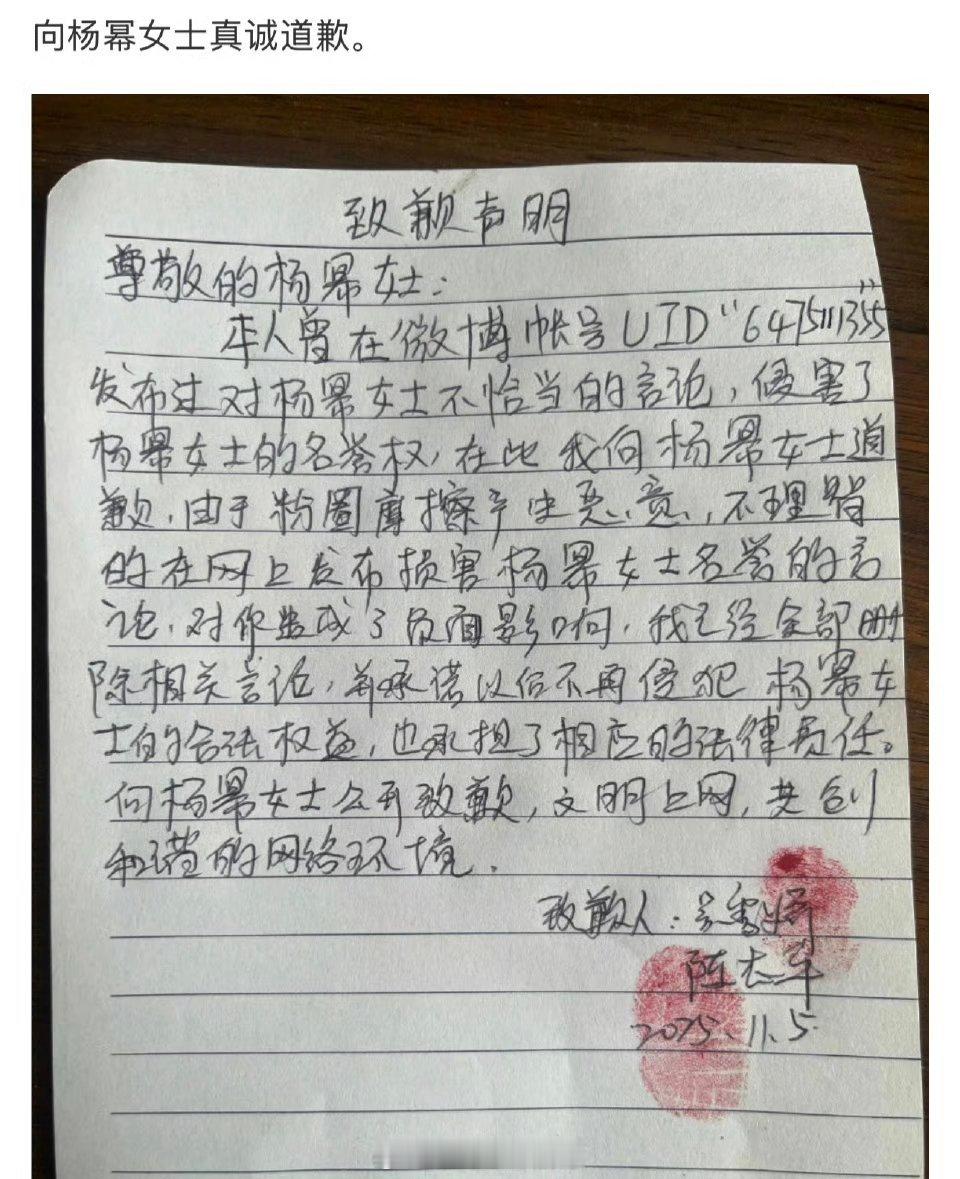 向杨幂女士真诚道歉。
致歉声明
尊敬的杨幂女士：
本人曾在微博帐号UID“6475111355”
发布过对杨幂女士不恰当的言论，侵害了
杨幂女士的名誉权，在此我向杨幂女士道
歉，由于粉圈摩擦产生恶意，不理智
的在网上发布损害杨幂女士名誉的言
论，对你造成了负面影响，我已经全部删
除相关言论，并承诺以后不再侵犯杨幂女
士的合法权益，也承担了相应的法律责任。
向杨幂女士公开致歉，文明上网，共创
和谐的网络环境．
致歉人：
陈志军
2025.11.5